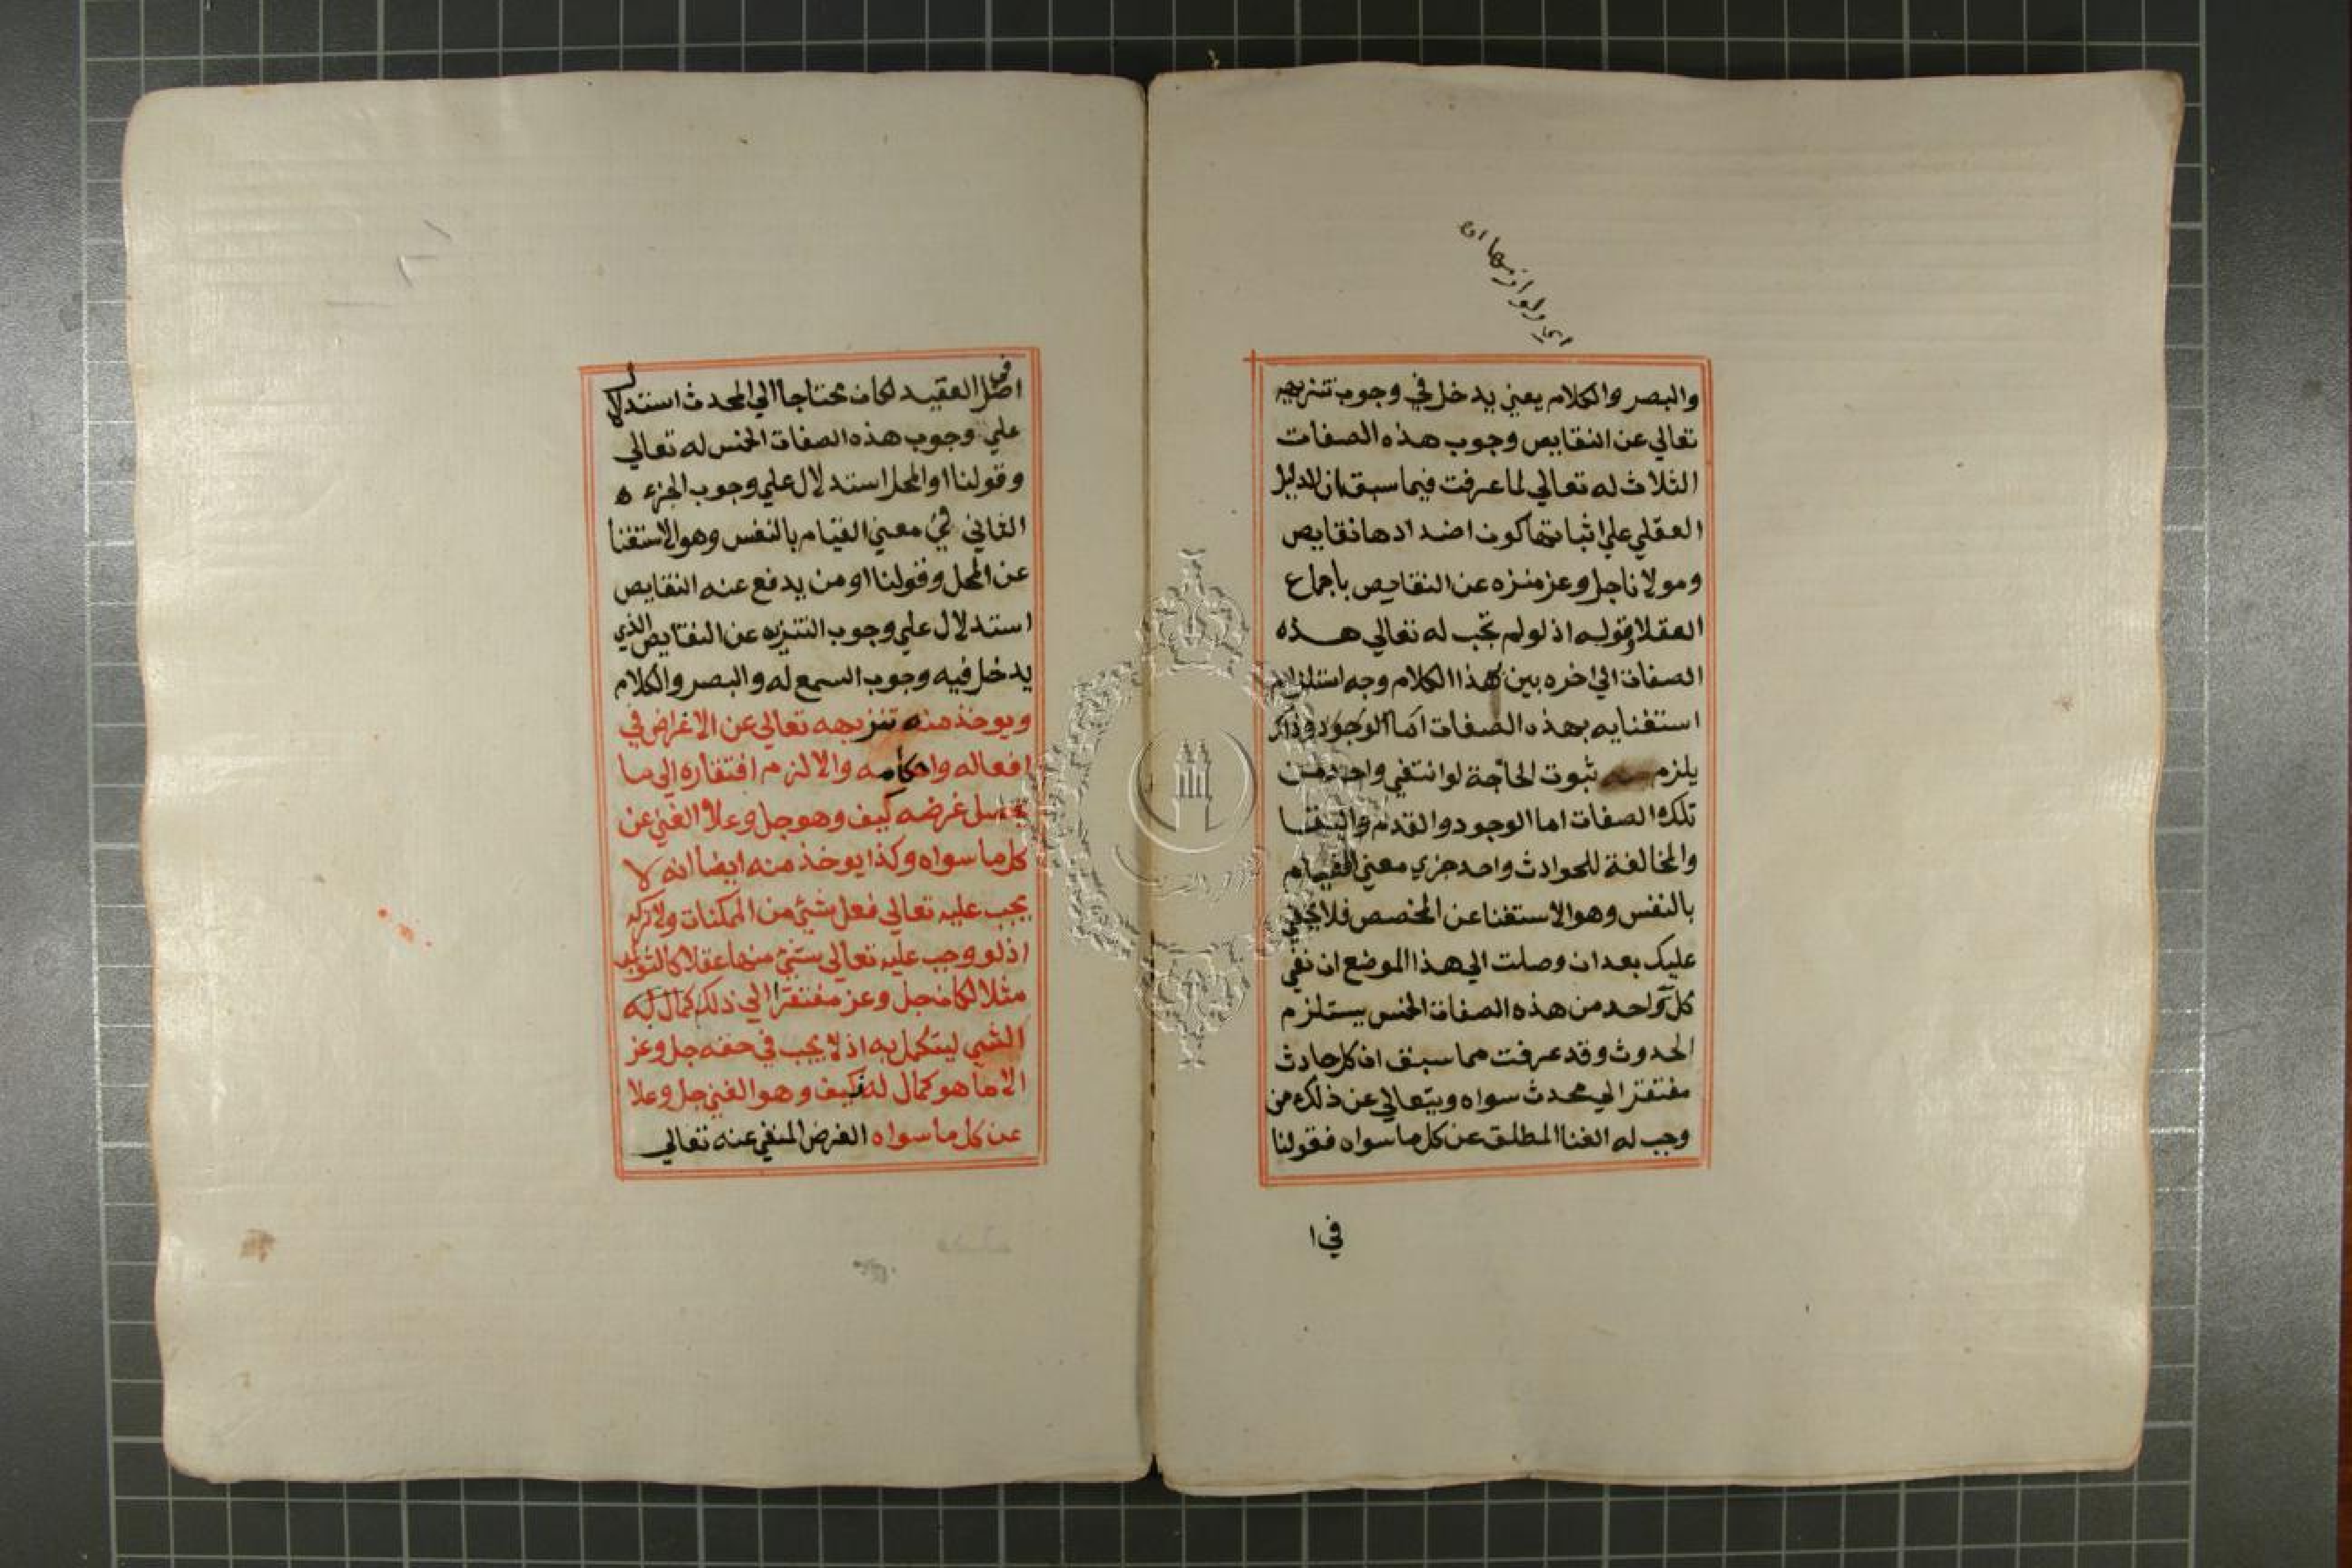 والبصر والكلام يعني يدخل في وجوب تنزيهه
تعالي عن النقايص وجوب هذه الصفات
الثلاث له تعالي لما عرفت فيما سبق ان الدليل
العقلي علي اثباتها كون اضدادها نقايص
ومولانا جل وعز منزه عن النقايص باجماع
العقلا وقوله اذ لو لم تجب له تعالي هذه
الصفات الي اخره بين بهذا الكلام وجه استلزام
استغنايه بهذه الصفات اما الوجود
يلزم ثبوت الحاجة لو انتفي واحد من
تلك الصفات اما الوجود والقدم والبقا
والمخالفة للحوادث واحد جزي معني القيام
بالنفس وهو الاستغنا عن المخصص فلا يخفي
عليك بعد ان وصلت الي هذا الموضع ان نفي
كل واحد من هذه الصفات الخمس يستلزم
الحدوث وقد عرفت مما سبق ان كل حادث
مفتقر الي محدث سواه ويتعالي عن ذلك من
وجب له الغنا المطلق عن كل ما سواه فقولنا
في ا
في اصل العقيد لكان محتاجا الي المحدث استدلال
علي وجوب هذه الصفات الخمس له تعالي
وقولنا او المحل استدلال علي وجوب الجزء ه
الثاني في معني القيام بالنفس وهو الاستغنا
عن المحل وقولنا او من يدفع عنه النقايص
استدلال علي وجوب التنزيه عن النقايص الذي
يدخل فيه وجوب السمع له والبصر والكلام
ويوخذ منه تنزيهه تعالي عن الاغراض في
افعاله واحكامه والا لزم افتقاره الي ما
يحصل غرضه كيف وهو جل وعلا الغني عن
كل ما سواه وكذا يوخذ منه ايضا انه لا
يجب عليه تعالي فعل شيئ من الممكنات ولا تركه
اذ لو وجب عليه تعالي شيئ منها عقلا كالثواب
مثلا لكان جل وعز مفتقرا الي ذلك كمال له
الشي ليتكمل به اذ لا يجب في حقه جل وعز
الا ما هو كمال له كيف وهو الغني جل وعلا
عن كل ما سواه الغرض المنفي عنه تعالي